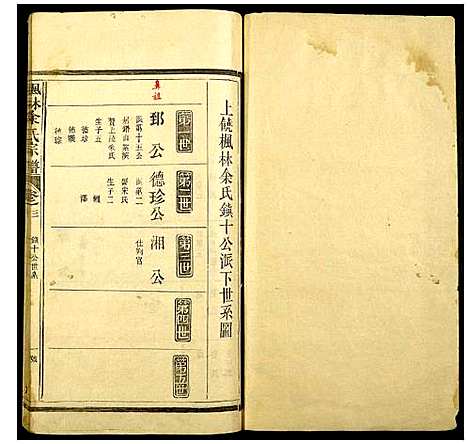 上饒楓林余氏鎮十公派下世系圖
第一世
第二世
第三世
第四世
第五世
真祖
邽公
派第十五公
生子五
德珍
德珠
德珍公
派第二
娶朱氏
生子二
湘公
仕判官
楓林余氏宗譜
卷之三
鎮十公世系